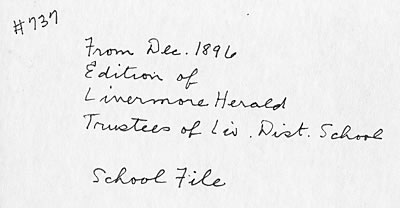 #737
From Dec. 1896
Edition of
Livermore Herald
Trustees of Liv. Dist. School
School File